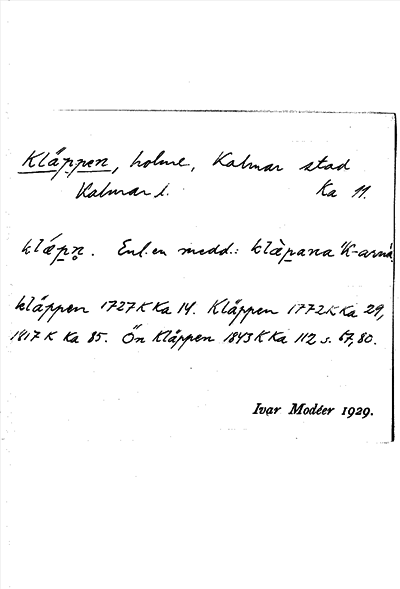 Kläppen, holme, Kalmar stad
Kalmar l. Ka 11.
klǽpn̥. Enl. en medd.: klæ̀pana "K-arna
kläppen 1727 K Ka 14. Kläppen 1772 K Ka 29,
1817 K Ka 85. Ön Kläppen 1843 K Ka 112 s. 67, 80.
Ivar Modéer 1929.